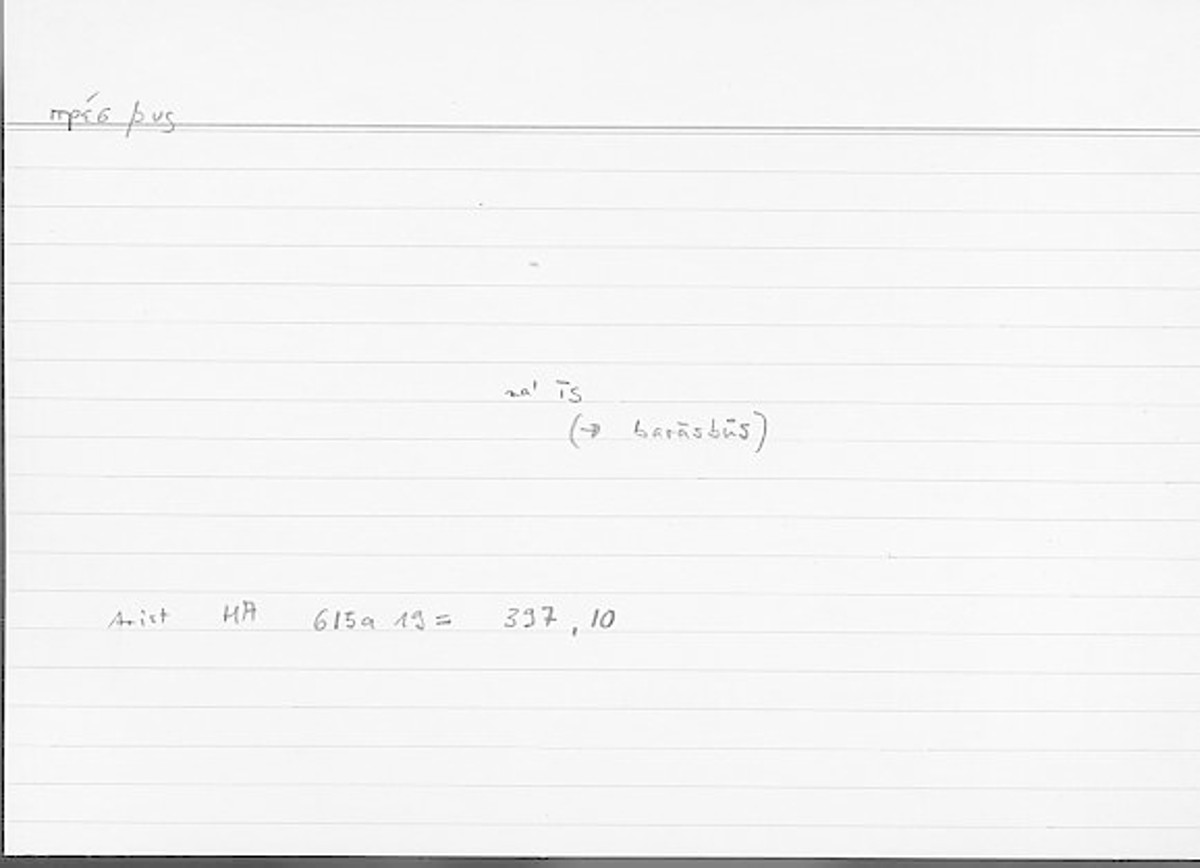 πρέσβυς
(→ barāsbūs)
Arist HA 615a 19 = 397, 10